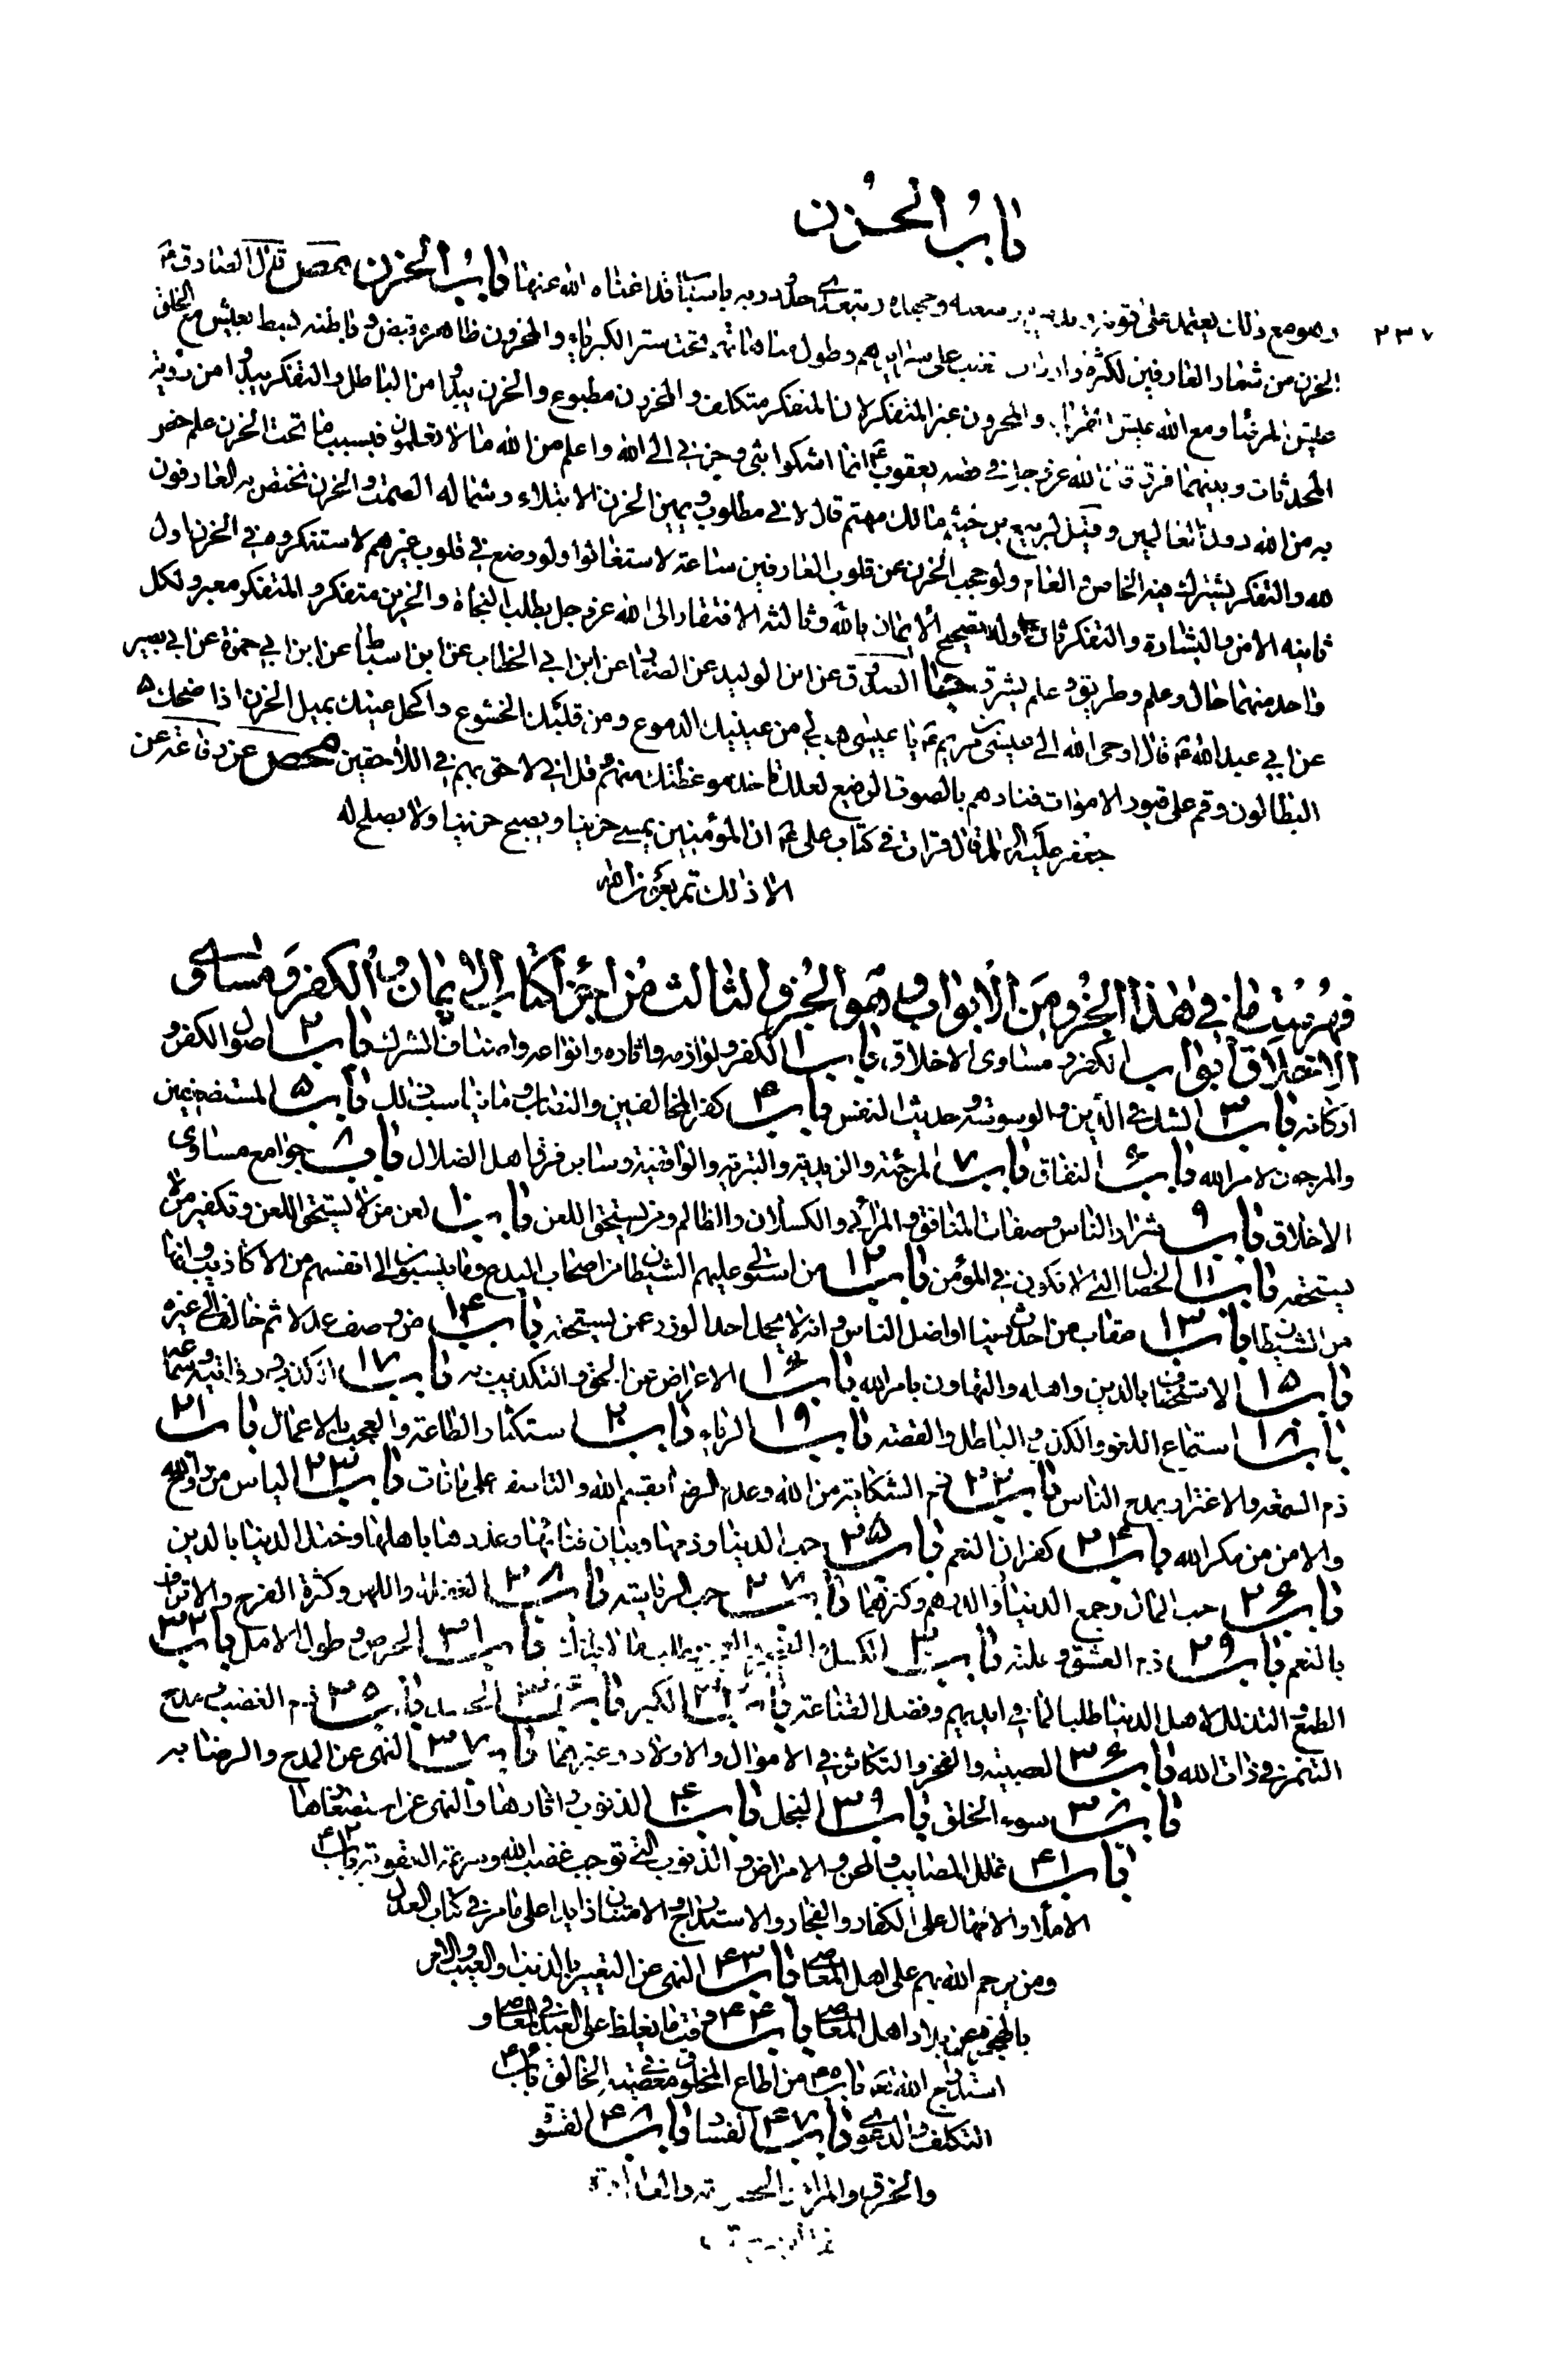 باب الحزن
٢٣٧
وهو مع ذلك يعتمد على قوته حدوده باسباب قد اغناه الله عنها باب الحزن مص قال الصادق ع
الحزن من شعار العارفين لكثرة واردات الغيب على سرايرهم وطول مباهاتهم تحت ستر الكبرياء والمحزون ظاهره قبض وباطنه بسط يعيش مع الخلق
عيش المرضى ومع الله عيش القربى والمحزون غير المتفكر لان المتفكر متكلف والمحزون مطبوع والحزن يبدا من الباطن والتفكر يبدا من رؤية
المحدثات وبينهما فرق قال الله عز وجل في قصة يعقوب ع انما اشكوا بثي وحزني الى الله واعلم من الله ما لا تعلمون فبسبب ما تحت الحزن علم خص
به من الله دون العالمين وقيل لربيع بن خثيم مالك مهتم قال لاني مطلوب ويمين الحزن الابتلاء وشماله الصمت والحزن يختص به العارفون
لله والتفكر يشترك فيه الخاص والعام ولو حجب الحزن عن قلوب العارفين ساعة لاستغاثوا ولو وضع في قلوب غيرهم لاستنكروه فالحزن اول
ثانيه الامن والبشارة والتفكر ثان اوله تصحيح الايمان بالله وثالثه الافتقار الى الله عز وجل بطلب النجاة والحزين متفكر والمتفكر معبر ولكل
واحد منهما حال وعلم وطريق وعلم يشرق جا الصدوق عن ابن الوليد عن الصفار عن ابن ابي الخطاب عن ابن اسباط عن ابن ابي حمزة عن ابي بصير
عن ابي عبد الله ع قال اوحى الله الى عيسى بن مريم ع يا عيسى هب لي من عينيك الدموع ومن قلبك الخشوع واكحل عينيك بميل الحزن اذا ضحك
البطالون وقم على قبور الاموات فنادهم بالصوت الرفيع لعلك تاخذ موعظتك منهم وقل اني لاحق بهم في اللاحقين محص عن رفاعة عن
جعفر عليه السلام قال قرات في كتاب علي ع ان المؤمنين يمسي حزينا ويصبح حزينا ولا يصلح له
الا ذلك تم بعون الله
فهرست ما في هذا الجزو من الابواب وهو الجزو الثالث من اجزاء كتاب الايمان والكفر ومساوى
الاخلاق ابواب الكفر ومساوى الاخلاق باب ١ الكفر ولوازمه واثاره وانواعه واصناف الشرك باب ٢ اصول الكفر و
اركانه باب ٣ الشك في الدين والوسوسة وحديث النفس باب ٤ كفر المخالفين والنصاب وما يناسب ذلك باب ٥ المستضعفين
والمرجون لامر الله باب ٦ النفاق باب ٧ المرجئة والزيدية والبترية والواقفية وساير فرق اهل الضلال باب ٨ جوامع مساوى
الاخلاق باب ٩ شرار الناس وصفات المنافق والمرائي والكسلان والظالم ومن يستحق اللعن باب ١٠ لعن من لا يستحق اللعن وتكفير من لا
يستحقه باب ١١ الخصال التي لا تكون في المؤمن باب ١٢ من استولى عليهم الشيطان من اصحاب البدع وما ينسبون الى انفسهم من الاكاذيب وانها
من الشيطان باب ١٣ عقاب من احدث دينا او اضل الناس وانه لا يحمل احد الوزر عمن يستحقه باب ١٤ من وصف عدلا ثم خالفه الى غيره
باب ١٥ الاستخفاف بالدين واهله والتهاون بامر الله باب ١٦ الاعراض عن الحق والتكذيب به باب ١٧ الكذب وروايته وسماعه
باب ١٨ استماع اللغو والكذب والباطل والقصة باب ١٩ الرياء باب ٢٠ استكثار الطاعة والعجب بالاعمال باب ٢١
ذم السمعة والاغترار بمدح الناس باب ٢٢ ذم الشكاية من الله وعدم الرضا بقسم الله والتاسف على ما فات باب ٢٣ الياس من روح الله
والامن من مكر الله باب ٢٤ كفران النعم باب ٢٥ حب الدنيا وذمها وبيان فنائها وغدرها باهلها وختل الدنيا بالدين
باب ٢٦ حب المال وجمع الدينار والدرهم وكنزهما باب ٢٧ حب الرياسة باب ٢٨ الغفلة واللهو وكثرة الفرح والاتراف
بالنعم باب ٢٩ ذم العشق وعلته باب ٣٠ الكسل والضجر وطلب ما لا يدرك باب ٣١ الحرص وطول الامل باب ٣٢
الطمع والتذلل لاهل الدنيا طلبا لما في ايديهم وفضل القناعة باب ٣٣ الكبر باب ٣٤ الحسد باب ٣٥ ذم الغضب ومدح
التنمر في ذات الله باب ٣٦ العصبية والفخر والتكاثر في الاموال والاولاد وغيرهما باب ٣٧ النهى عن المدح والرضا به
باب ٣٨ سوء الخلق باب ٣٩ البخل باب ٤٠ الذنوب واثارها والنهى عن استصغارها
باب ٤١ علل المصايب والمحن والامراض والذنوب التي توجب غضب الله وسرعة العقوبة باب ٤٢
الاملاء والامهال على الكفار والفجار والاستدراج والافتتان زايدا على ما مر في كتاب العدل
ومن يرحم الله بهم على اهل المعاصي باب ٤٣ النهى عن التعيير بالذنب او العيب والامر
بالهجرة عن بلاد اهل المعاصي باب ٤٤ وقت ما يغلظ على العبد في المعاصي و
استدراج الله تع باب ٤٥ من اطاع المخلوق في معصية الخالق باب ٤٦
التكلف والدعوى باب ٤٧ الفساد باب ٤٨ القسوة
والخرق والمراء والخصومة والعداوة